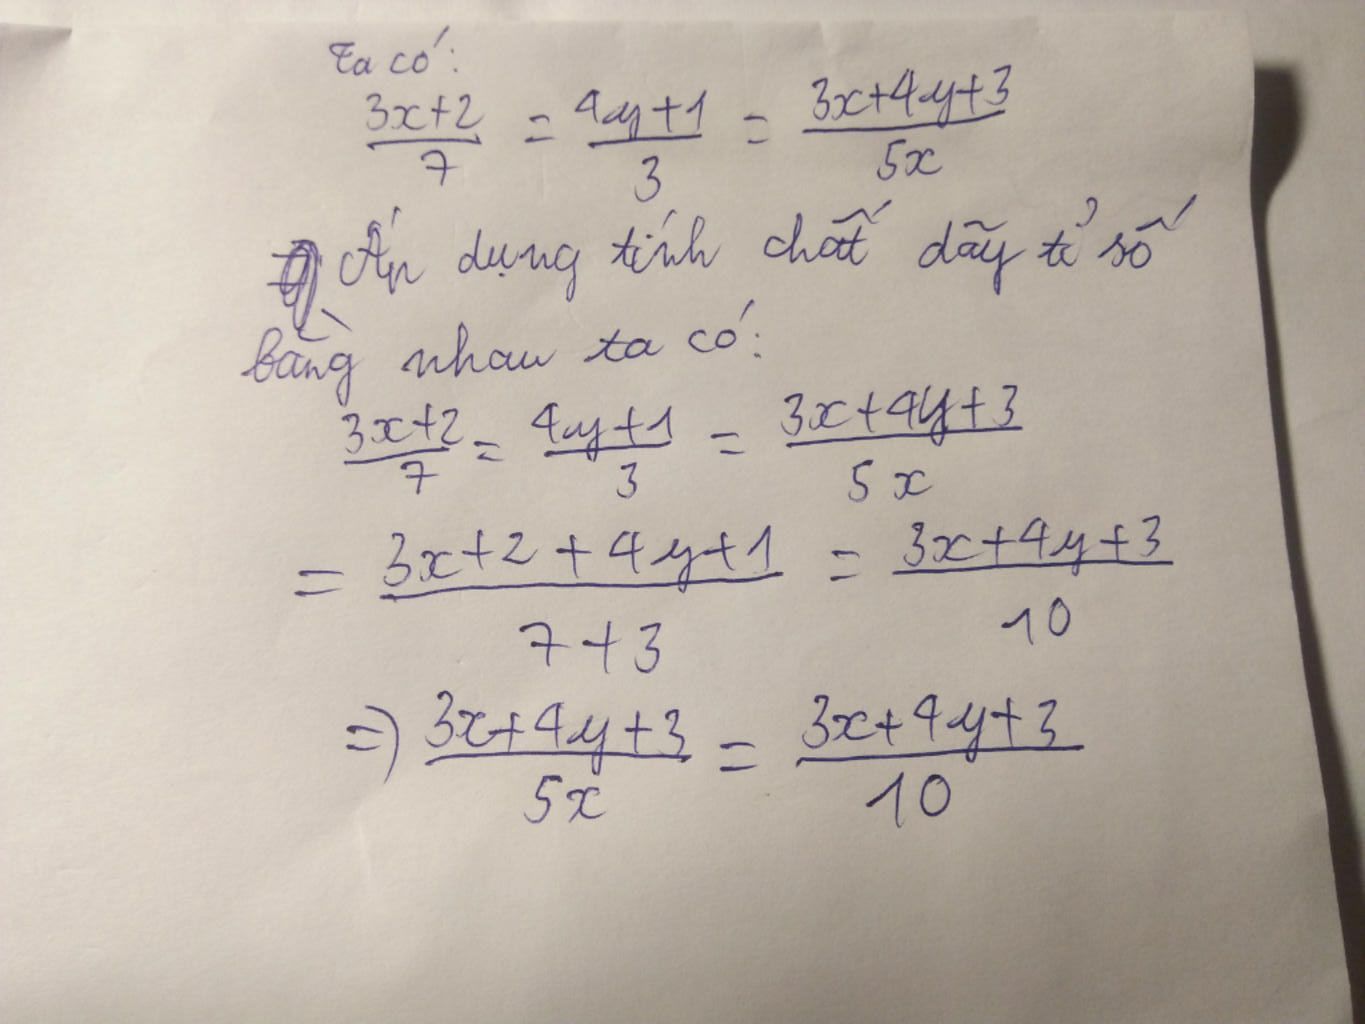 Ta có:
3x+2/7 = 4y+1/3 = 3x+4y+3/5x
Áp dụng tính chất dãy tỉ số
bằng nhau ta có:
3x+2/7 = 4y+1/3 = 3x+4y+3/5x
= 3x+2+4y+1/7+3 = 3x+4y+3/10
=> 3x+4y+3/5x = 3x+4y+3/10